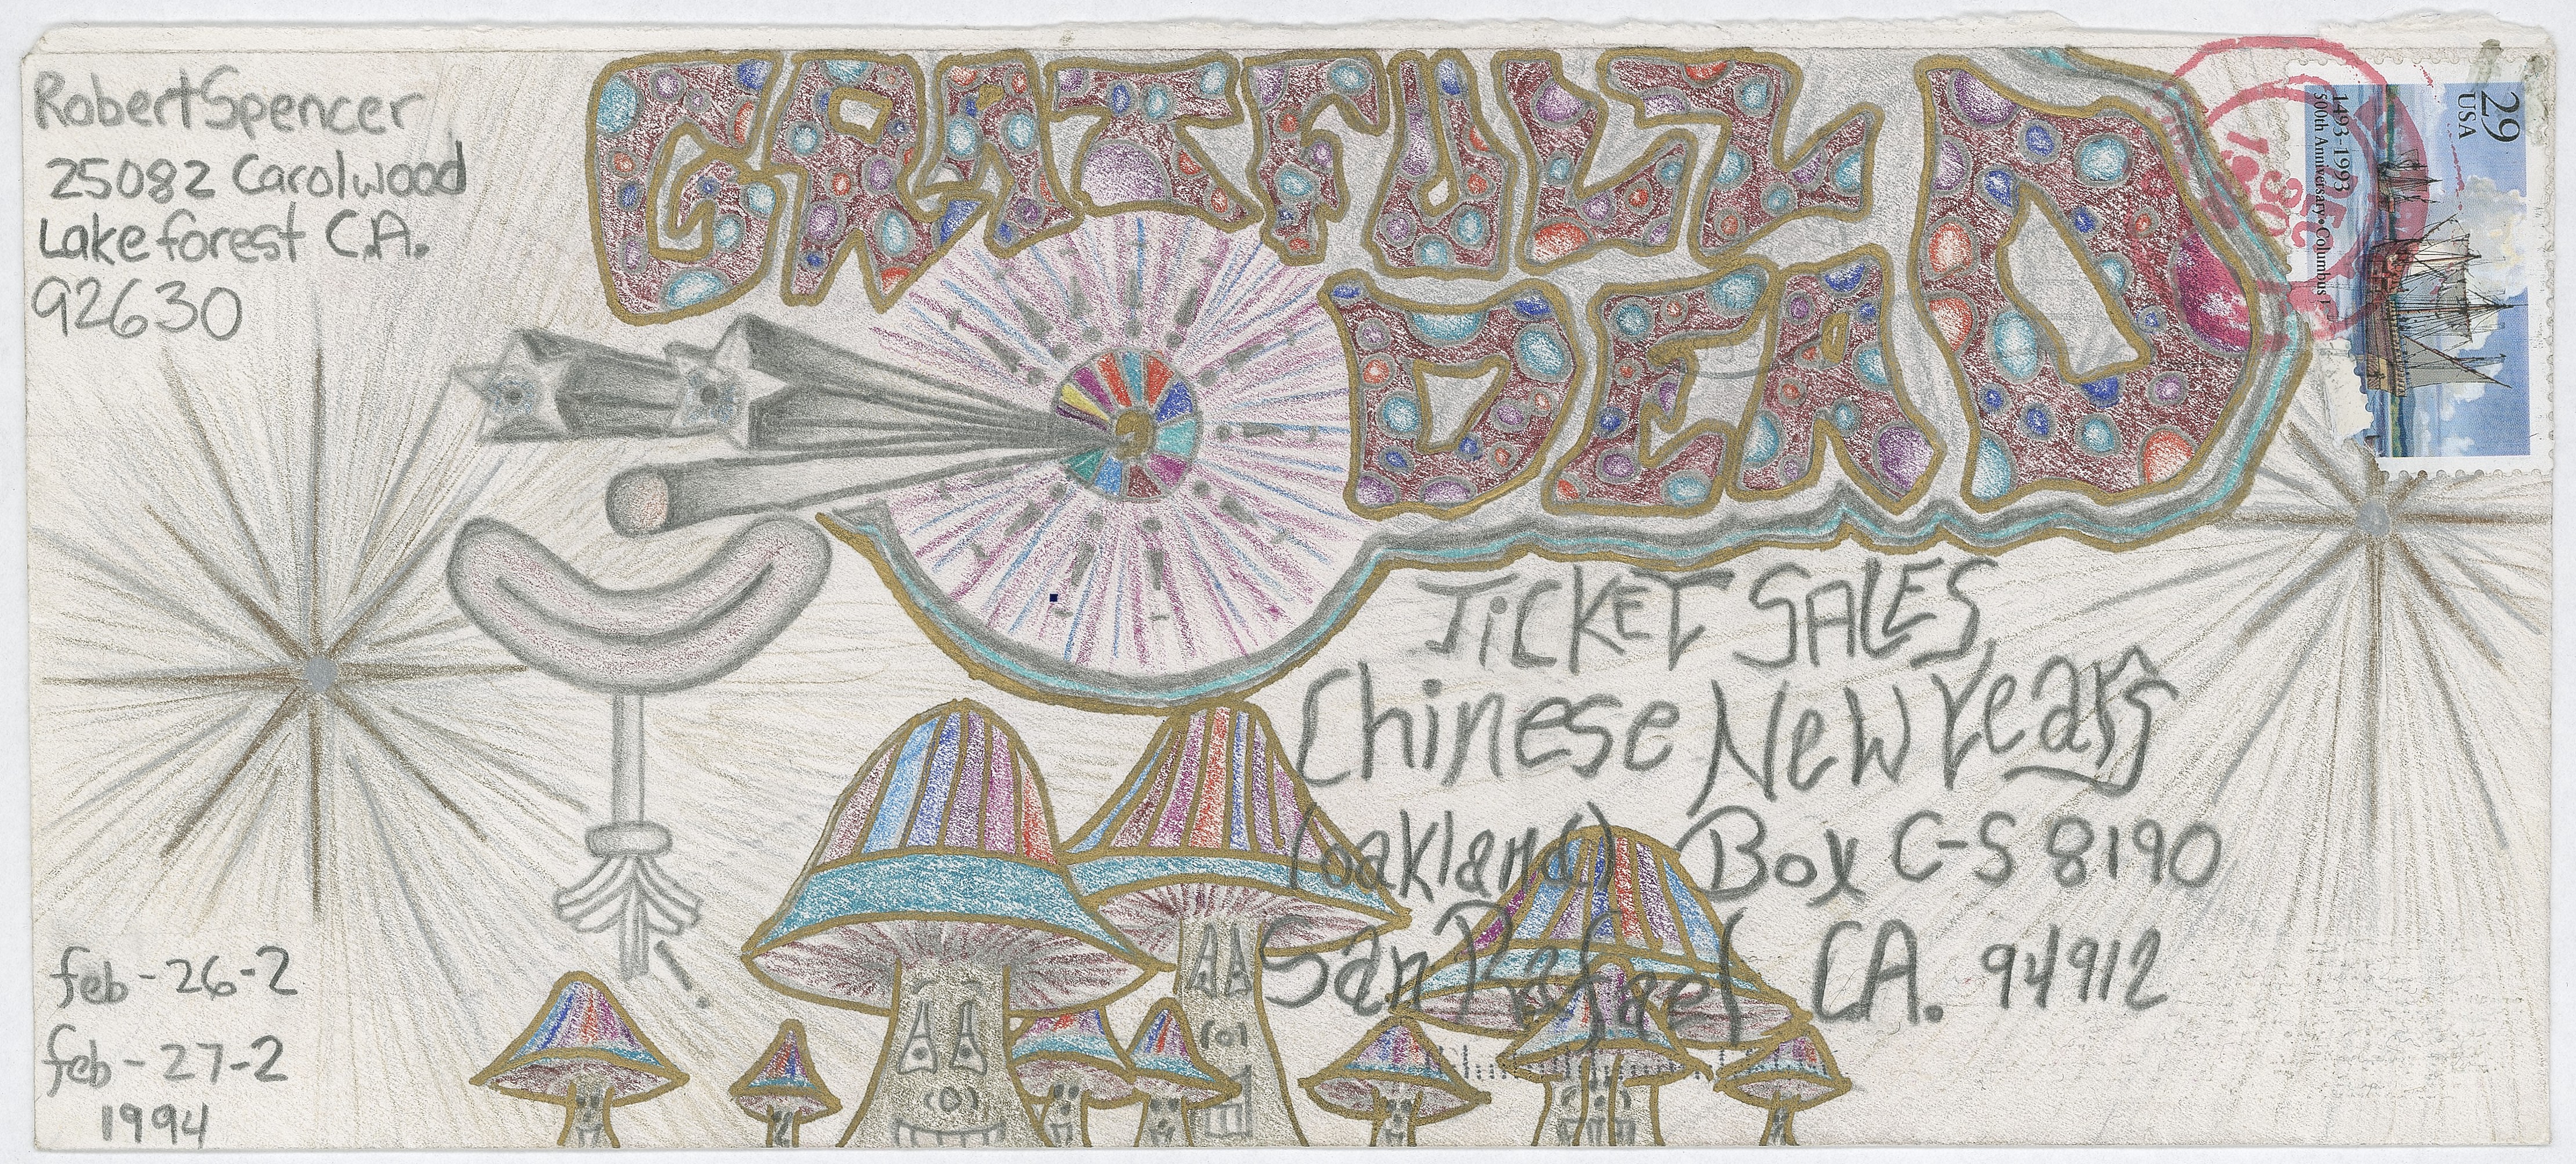 Robert Spencer
25082 Carolwood
Lake forest C.A.
92630
GRATFULL
DEAD
29
USA
1493-1993
500th Anniversary • Columbus
1993
TICKET SALES,
Chinese New Years
(oakland) Box C-S 8190
San Rafael CA. 94912
feb-26-2
feb-27-2
1994